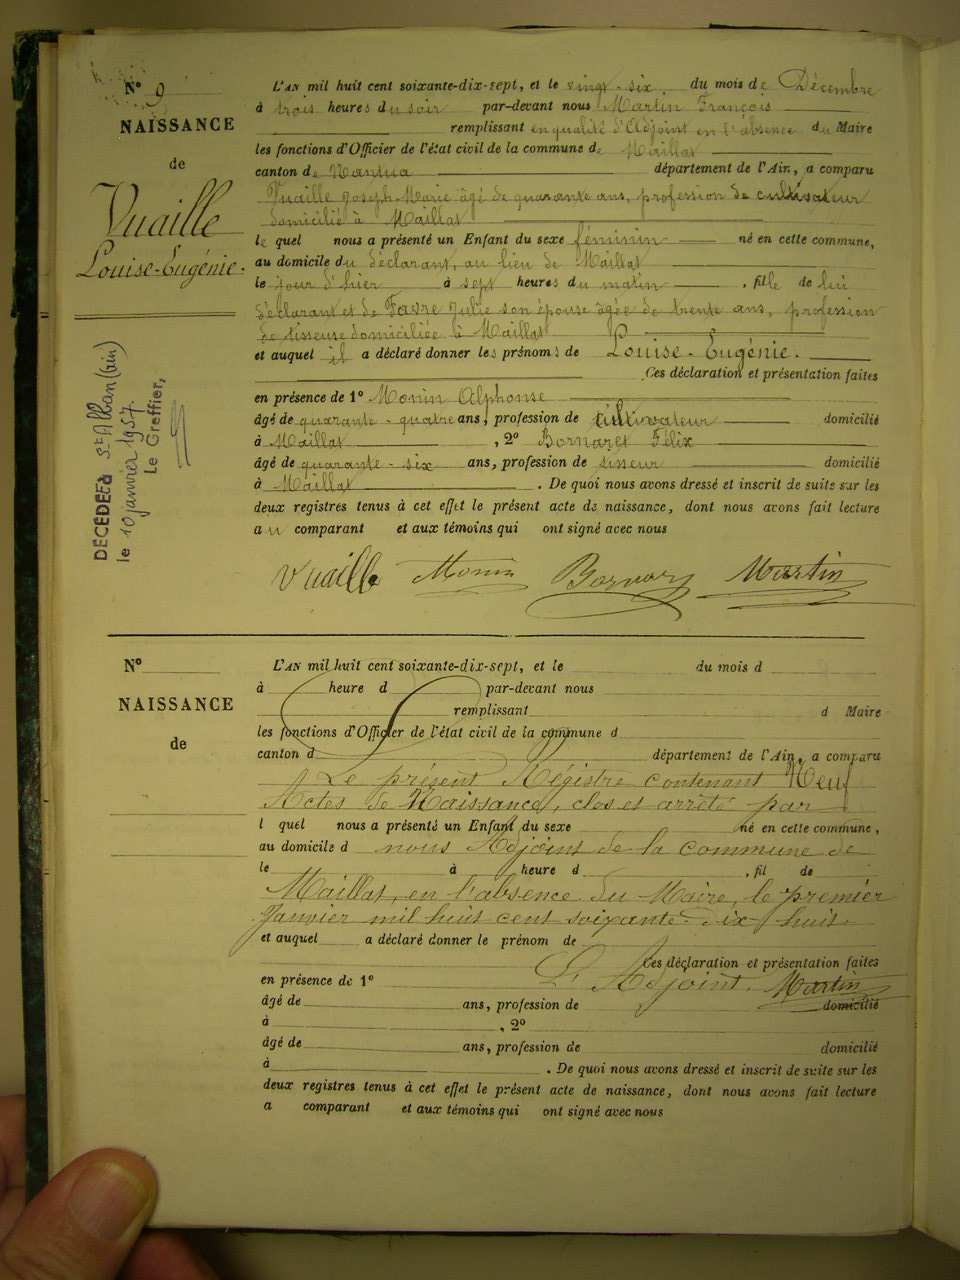 N° 9
NAISSANCE
de
Vuaille
Louise-Eugénie.
DÉCÉDÉE à St Alban (Ain)
le 10 janvier 1957.
Le Greffier,
L'AN mil huit cent soixante-dix-sept, et le vingt-six du mois de Décembre
à trois heures du soir par-devant nous Martin François
remplissant en qualité d'Adjoint en l'absence du Maire
les fonctions d'Officier de l'état civil de la commune de Maillat
canton de Nantua département de l'Ain, a comparu
Vuaille Joseph-Marie âgé de quarante ans, profession de cultivateur
domicilié à Maillat
le quel nous a présenté un Enfant du sexe féminin né en cette commune,
au domicile du déclarant, au lieu de Maillat
le jour d'hier à sept heures du matin, fille de lui
déclarant et de Favre Julie son épouse âgée de trente ans, profession
de tisseuse domiciliée à Maillat
et auquel il a déclaré donner les prénoms de Louise-Eugénie.
Ces déclaration et présentation faites
en présence de 1° Monin Alphonse
âgé de quarante-quatre ans, profession de cultivateur domicilié
à Maillat, 2° Bornarel Félix
âgé de quarante-six ans, profession de tisseur domicilié
à Maillat. De quoi nous avons dressé et inscrit de suite sur les
deux registres tenus à cet effet le présent acte de naissance, dont nous avons fait lecture
au comparant et aux témoins qui ont signé avec nous
Vuaille Monin Bornarel Martin
N°
NAISSANCE
de
L'AN mil huit cent soixante-dix-sept, et le du mois d
à heure d par-devant nous
remplissant d Maire
les fonctions d'Officier de l'état civil de la commune d
canton d département de l'Ain, a comparu
Le présent Régistre contenant Neuf
Actes de Naissance, clos et arrêté par
l quel nous a présenté un Enfant du sexe né en cette commune,
au domicile d nous Adjoint de la commune de
le à heure d, fil de
Maillat, en l'absence du Maire, le premier
Janvier mil huit cent soixante-dix huit.
et auquel a déclaré donner le prénom de
Ces déclaration et présentation faites
en présence de 1° L'Adjoint. Martin
âgé de ans, profession de domicilié
à, 2°
âgé de ans, profession de domicilié
à. De quoi nous avons dressé et inscrit de suite sur les
deux registres tenus à cet effet le présent acte de naissance, dont nous avons fait lecture
a comparant et aux témoins qui ont signé avec nous